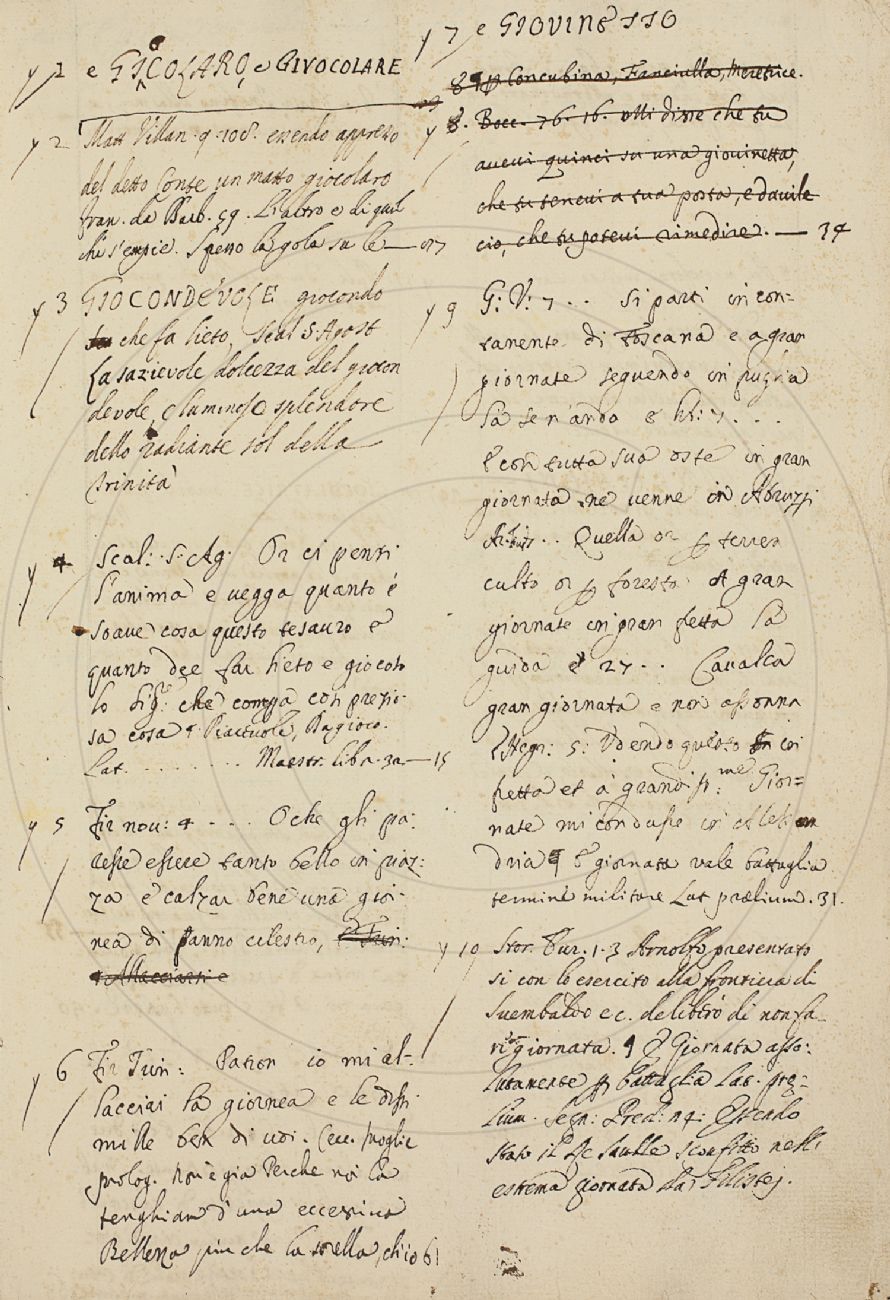 y 2 e GICOLARO, e GIVOCOLARE
y 2 Matt Villan. 9. 108. essendo appresso
del detto Conte un matto giocolaro
fran. da Barb. 59. L'altro e di quel
che s'empie. Spesso la gola su le
y 3 GIOCONDEVOLE giocondo
che fa lieto, Scal S. Agost
La sazievole dolcezza del giocon
devole, e luminoso splendore
dello radiante sol della
trinità
y 4 Scal: S. Ag. Or ci pensi
l'anima e vegga quanto è
soave cosa questo tesauro e
quanto dee far lieto e giocoso
lo che compra cosi prezio-
sa cosa
Lat. . . . . . . . . Maestr. lib. 15
y 5 Fir nov: 4 - . . . O che gli pa:
resse essere tanto bello in piaz:
za e calzar bene una gior-
nea di panno celestro,
Allacciarsi e
y 6 Fir Trin: io mi al-
lacciai la giornea e le dissi
mille ben di voi. Cecc. moglie
prolog. Non è gia Perche noi la
tenghiam d'una eccessiva
Bellezza piu che la sorella, ch'io 61
y 7 e GIOVINETTO
Concubina, Fanciulla, Meretrice.
y 8. Bocc. 76. 16. Mi disse che tu
avevi quinci su una giovinetta,
che tu tenevi a tua posta, e davile
cio, che tu potevi rimedire. — 34
y 9 G: V: 7 . . Si parti in con=
tanente di Toscana e a gran
giornate seguendo in puglia
Sa se n'ando e lib: 7 . . .
E con tutta sua oste in gran
giornata ne venne in Abruzzi
. . Quella or p terren
culto or p foresta A gran
giornate in gran fretta La
guida e 27 . . Cavalca
gran giornata e non assonna
5: Udendo questo in
fretta et à grandiss:me Gior=
nate mi condusse in Alessan
dria ¶ E giornata vale battaglia
termine militare Lat prælium. 31.
y 10 Stor. Eur. 1. 3 Arnolfo presentato
si con lo esercito alla frontiera di
Suembaldo ec. deliberò di non fa-
giornata. ¶ E Giornata asso:
lutamente p battaglia Lat. præ-
lium. Segn: Pred: n4: Essendo
stato il Re Saulle sconfitto nell'
estrema giornata da' Filistej.